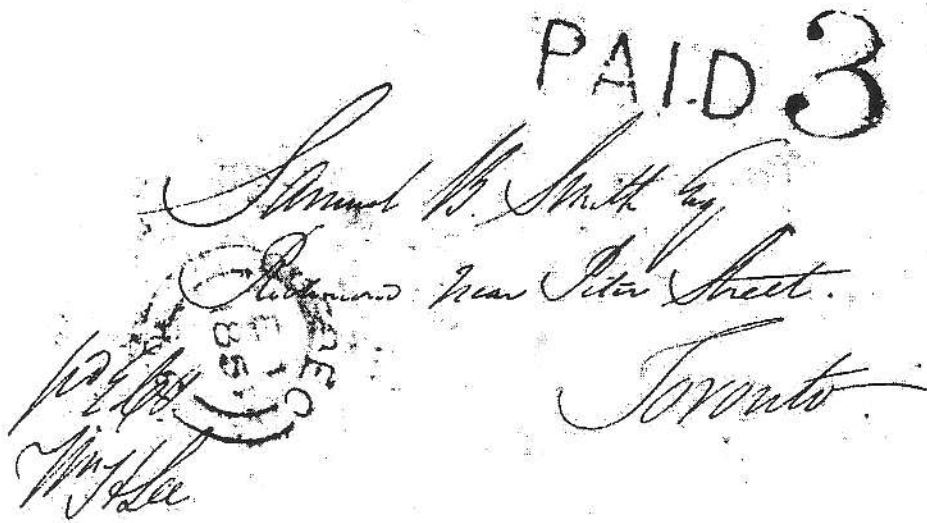 PAID 3
Samuel B. Smith Esq
Richmond near Peter Street.
Toronto.
Wm H Lee